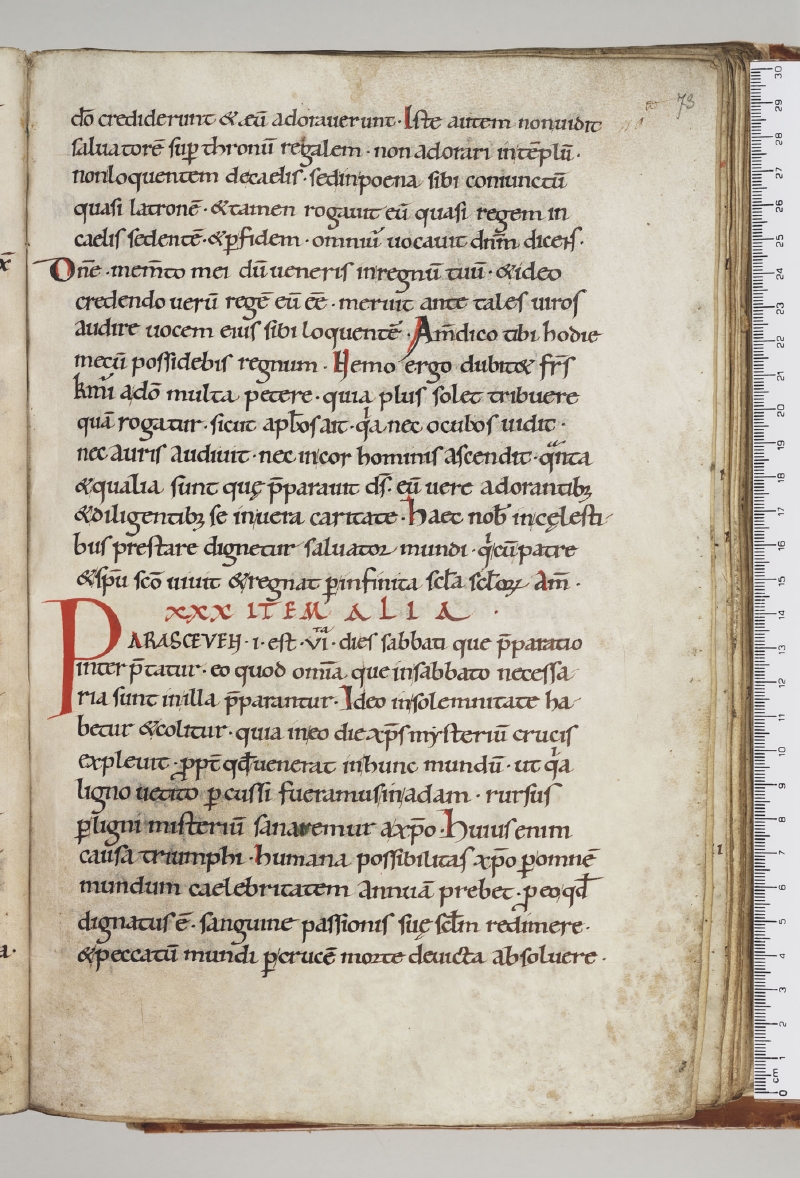 73
dō crediderunt & eū adorauerunt · Iste autem non uidit
saluatorē sup̄ thronū regalem · non adorari in tēplū ·
non loquentem de caelis · sed in poena sibi coniunctū
quasi latronē · & tamen rogauit eū quasi regem in
caelis sedentē · & p̄ fidem · omniū uocauit dn̄m dicens ·
Dn̄e · mem̄to mei dū ueneris in regnū tuū · & ideo
credendo uerū regē eū eē · meruit ante tales uiros
audire uocem eius sibi loquentē · Am̄ dico tibi hodie
mecū possidebis regnum · Nemo ergo dubit& fr̄s
km̄i ad dō multa petere · quia plus solet tribuere
quā rogatur · sicut apl̄os ait · qa nec ocubos uidit ·
nec auris audiuit · nec in cor hominis ascendit · qnta
& qualia sunt quę p̄parauit ds̄ · eū uere adorantibꝫ
& diligentibꝫ se in uera caritate · haec nob̄ in cęlesti
bus prestare dignetur saluator mundi · qi cū patre
& sp̄u sc̄o uiuit & regnat p̄ infinita scl̄a scl̄oꝝ am̄ ·
XXX ITEM ALIA ·
PARASCEVEH · i · est · VIta · dies sabbati que p̄paratio
interp̄tatur · eo quod om̄a que in sabbato necessa
ria sunt in illa p̄parantur · Ideo in solemnitate ha
betur & colitur · quia in eo die xp̄s mysteriū crucis
expleuit · ꝓpt̄ qd̄ uenerat in hunc mundū · ut qa
ligno uetito p̄cussi fueramus in adam · rursus
p̄ ligni misteriū sanaremur a xp̄o · Huius enim
causa triumphi · humana possibilitas xp̄o p̄ omnē
mundum caelebritatem annuā prebet · p̄ eo qd̄
dignatus ē · sanguine passionis suę scl̄m redimere ·
& peccatū mundi p̄ crucē morte deuicta absoluere ·